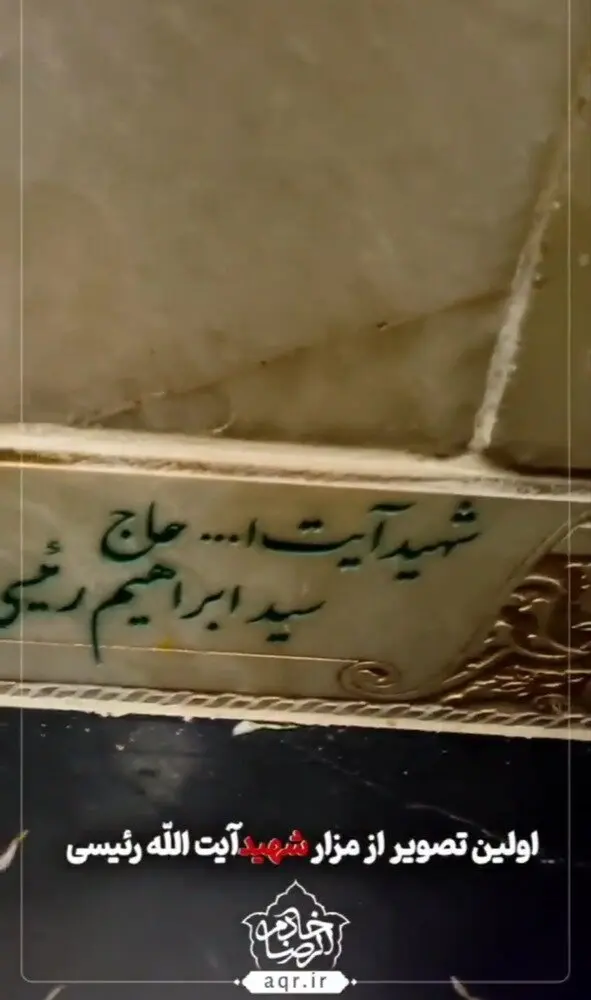 شهید آیت ا... حاج
سید ابراهیم رئیسی
اولین تصویر از مزار شهید آیت اللّه رئیسی
خادم الرضا
aqr.ir